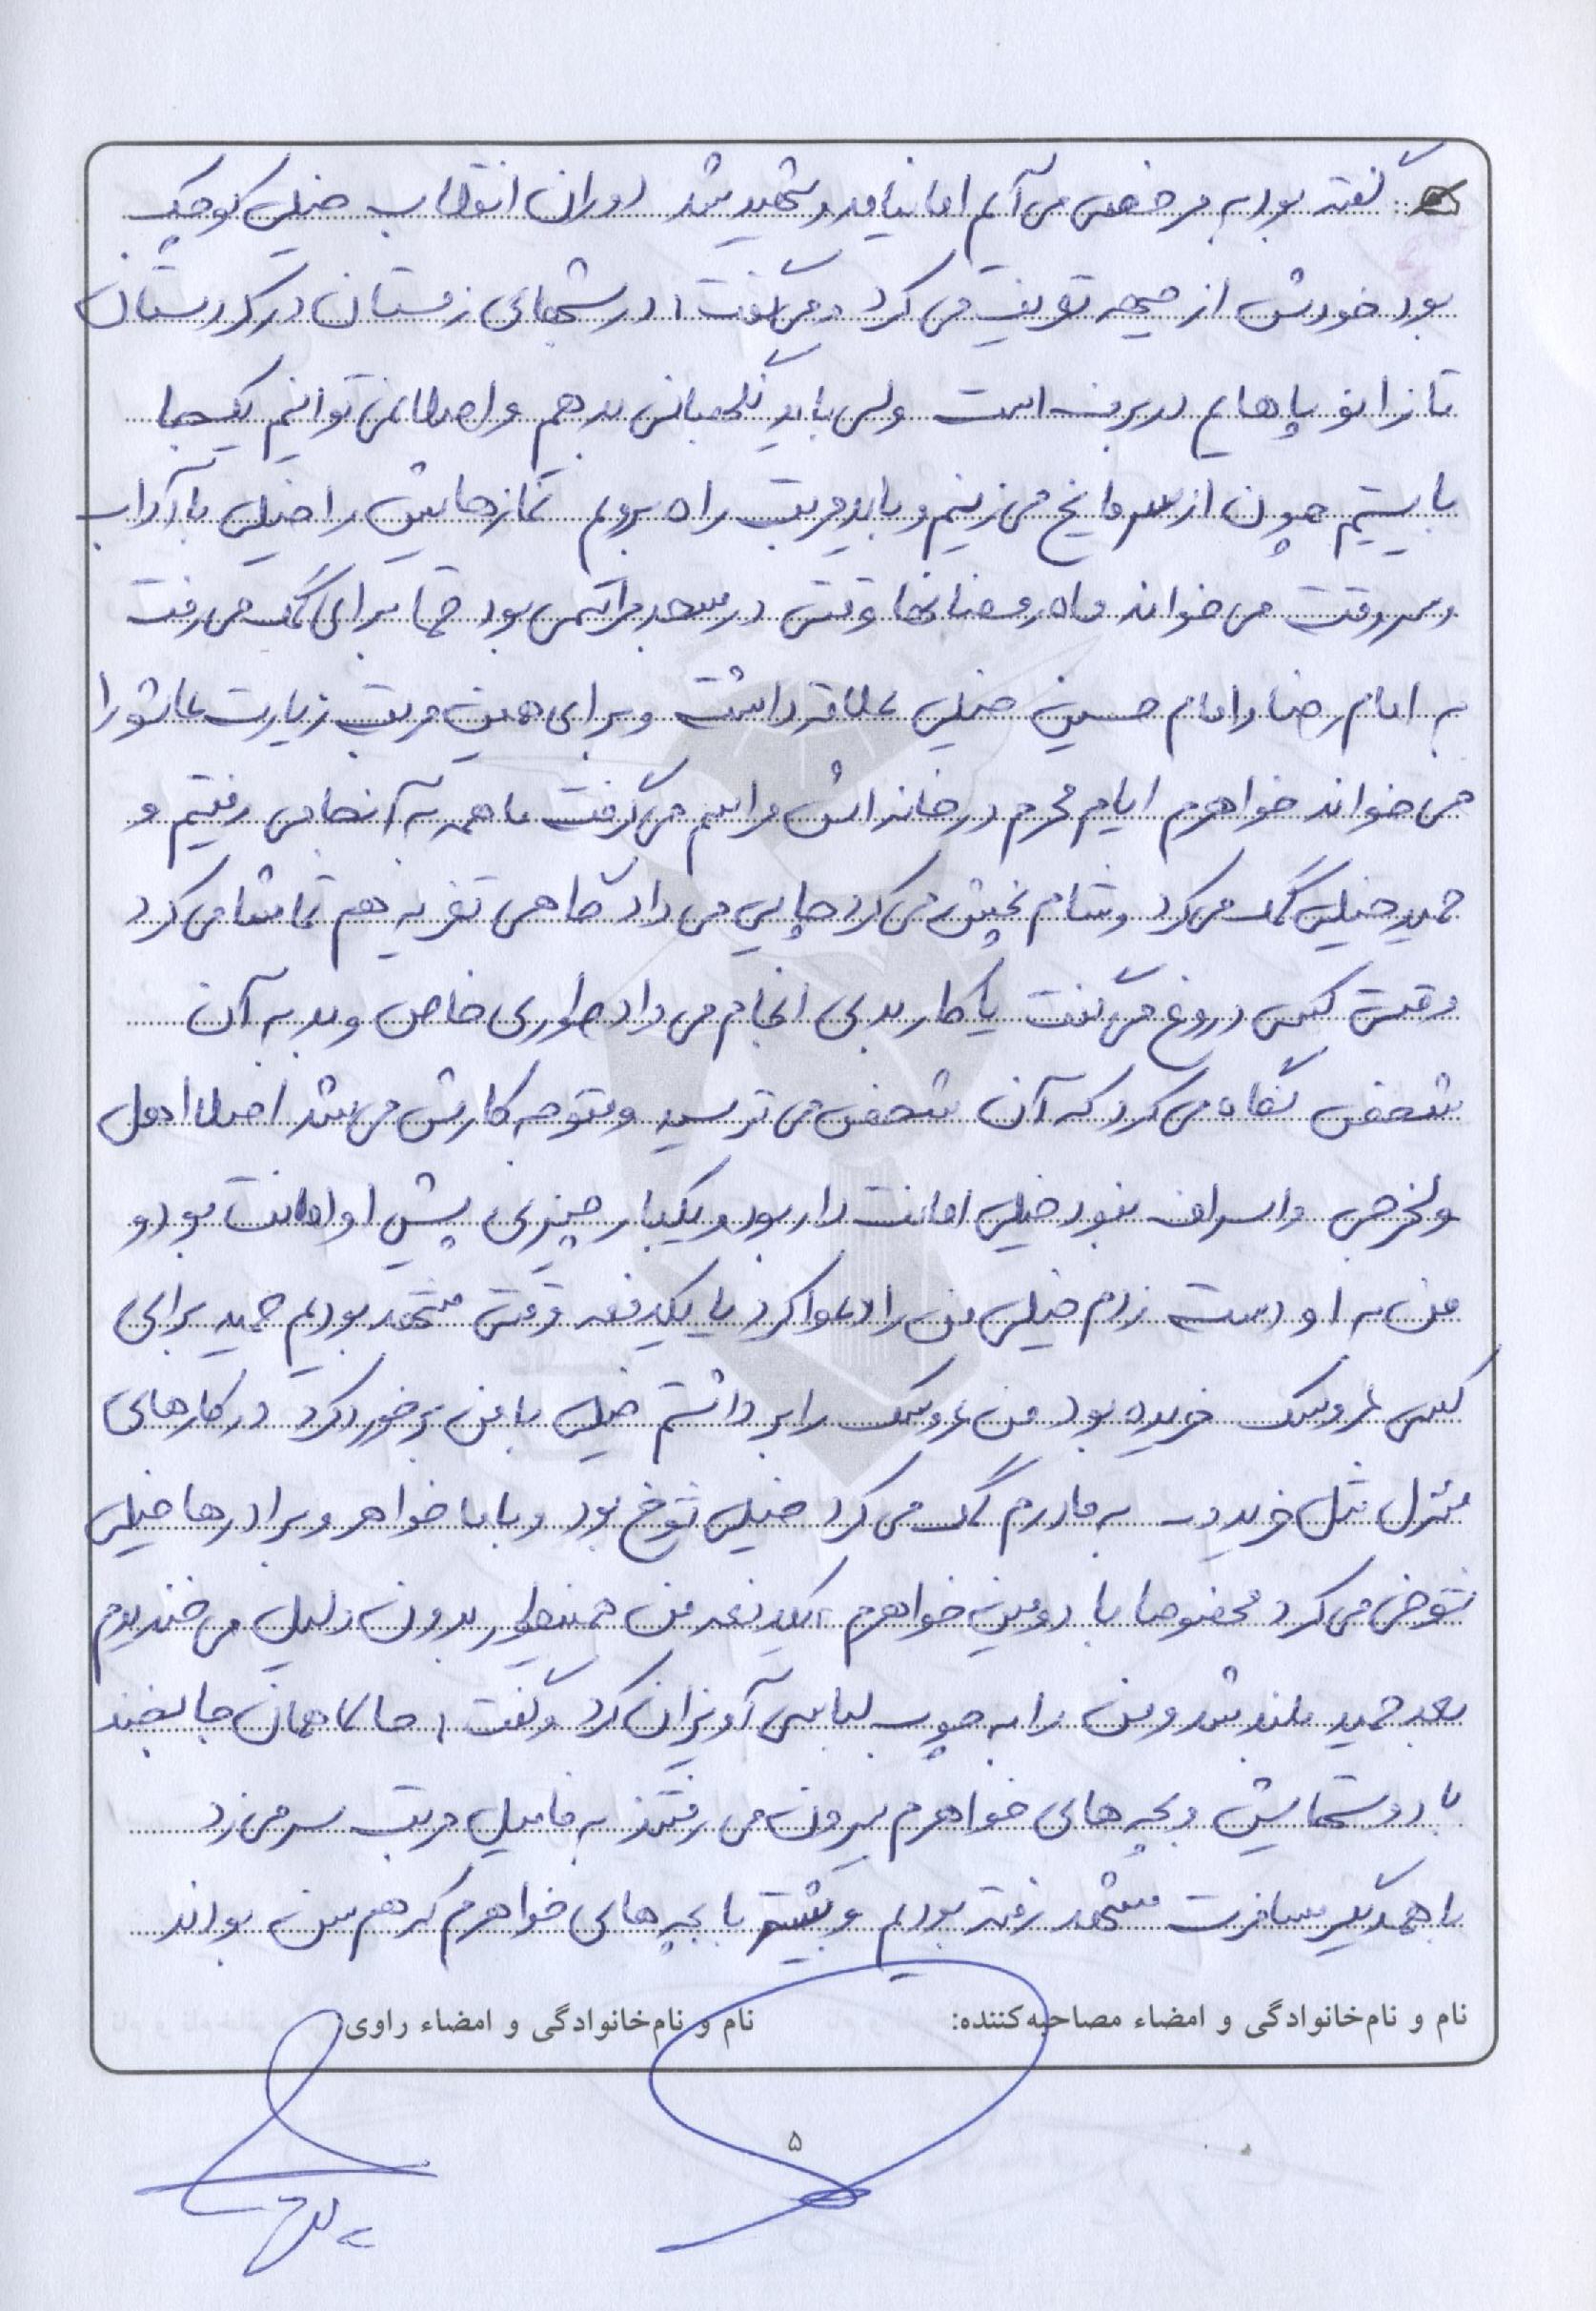 گفته بود به مرخصی می آیم اما نیامد و شهید شد دوران انقلاب خیلی کوچک
بود خودش از جبهه تعریف می کرد و می گفت: در شبهای زمستان در کردستان
تا زانو پاهایم در برف است ولی باید نگهبانی بدهم و اصلا نمی توانیم یکجا
بایستیم چون از سرما یخ می زنیم و باید مرتب راه برویم نمازهایش را خیلی با آداب
و سر وقت می خواند ماه رمضانها وقتی در مسجد مراسمی بود حتما برای کمک می رفت
به امام رضا و امام حسین خیلی علاقه داشت و برای همین مرتب زیارت عاشورا
می خواند خواهرم ایام محرم در خانه اش مراسم می گرفت ما همه به آنجا می رفتیم و
حمید خیلی کمک می کرد و شام پخش می کرد چایی می داد گاهی تعزیه هم تماشا می کرد
وقتی کسی دروغ می گفت یا کار بدی انجام می داد طوری خاص و بد به آن
شخص نگاه می کرد که آن شخص می ترسید و متوجه کارش می شد اصلا اهل
ولخرجی و اسراف نبود خیلی امانت دار بود و یکبار چیزی پیش او امانت بود و
من به او دست زدم خیلی من را دعوا کرد یا یکدفعه وقتی مشهد بودیم حمید برای
کسی عروسک خریده بود من عروسک را برداشتم خیلی با من برخورد کرد در کارهای
منزل مثل خرید و.. به مادرم کمک می کرد خیلی شوخ بود و با ما خواهر و برادرها خیلی
شوخی می کرد مخصوصا با دومین خواهرم، یکدفعه من همینطور بدون دلیل می خندیدم
بعد حمید بلند شد و من را به چوب لباسی آویزان کرد و گفت: حالا همان جا بخند
با دوستهایش و بچه های خواهرم بیرون می رفتند به فامیل مرتب سر می زد
با همدیگر مسافرت مشهد رفته بودیم و بیشتر با بچه های خواهرم که هم سن بودند
نام و نام‌خانوادگی و امضاء مصاحبه‌کننده: نام و نام‌خانوادگی و امضاء راوی:
۵